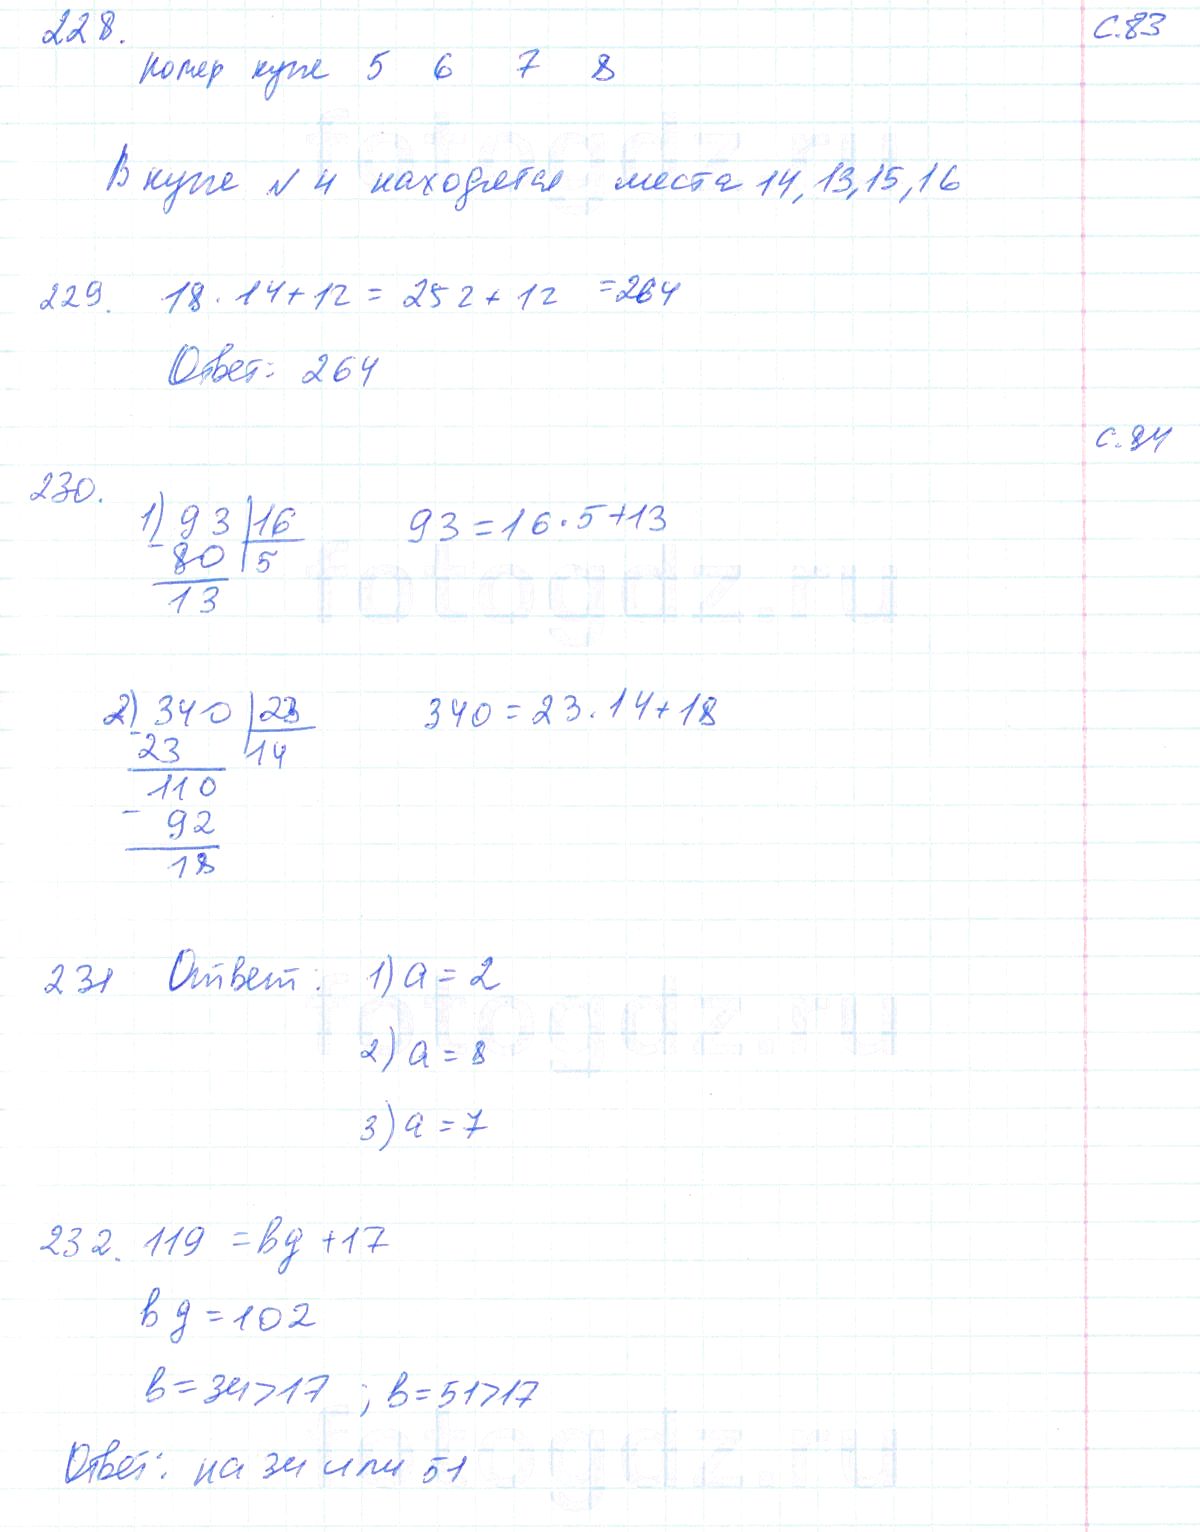 228.
с.83
Номер купе 5 6 7 8
В купе № 4 находятся места 14, 13, 15, 16
229. 18 · 14 + 12 = 252 + 12 = 264
Ответ: 264
с.84
230.
1) 93 | 16 93 = 16 · 5 + 13
- 80 | 5
13
2) 340 | 23 340 = 23 · 14 + 18
- 23 | 14
110
- 92
18
231 Ответ: 1) a = 2
2) a = 8
3) a = 7
232. 119 = bg + 17
bg = 102
b = 34 > 17 ; b = 51 > 17
Ответ: на 34 или 51
fotogdz.ru
fotogdz.ru
fotogdz.ru
fotogdz.ru